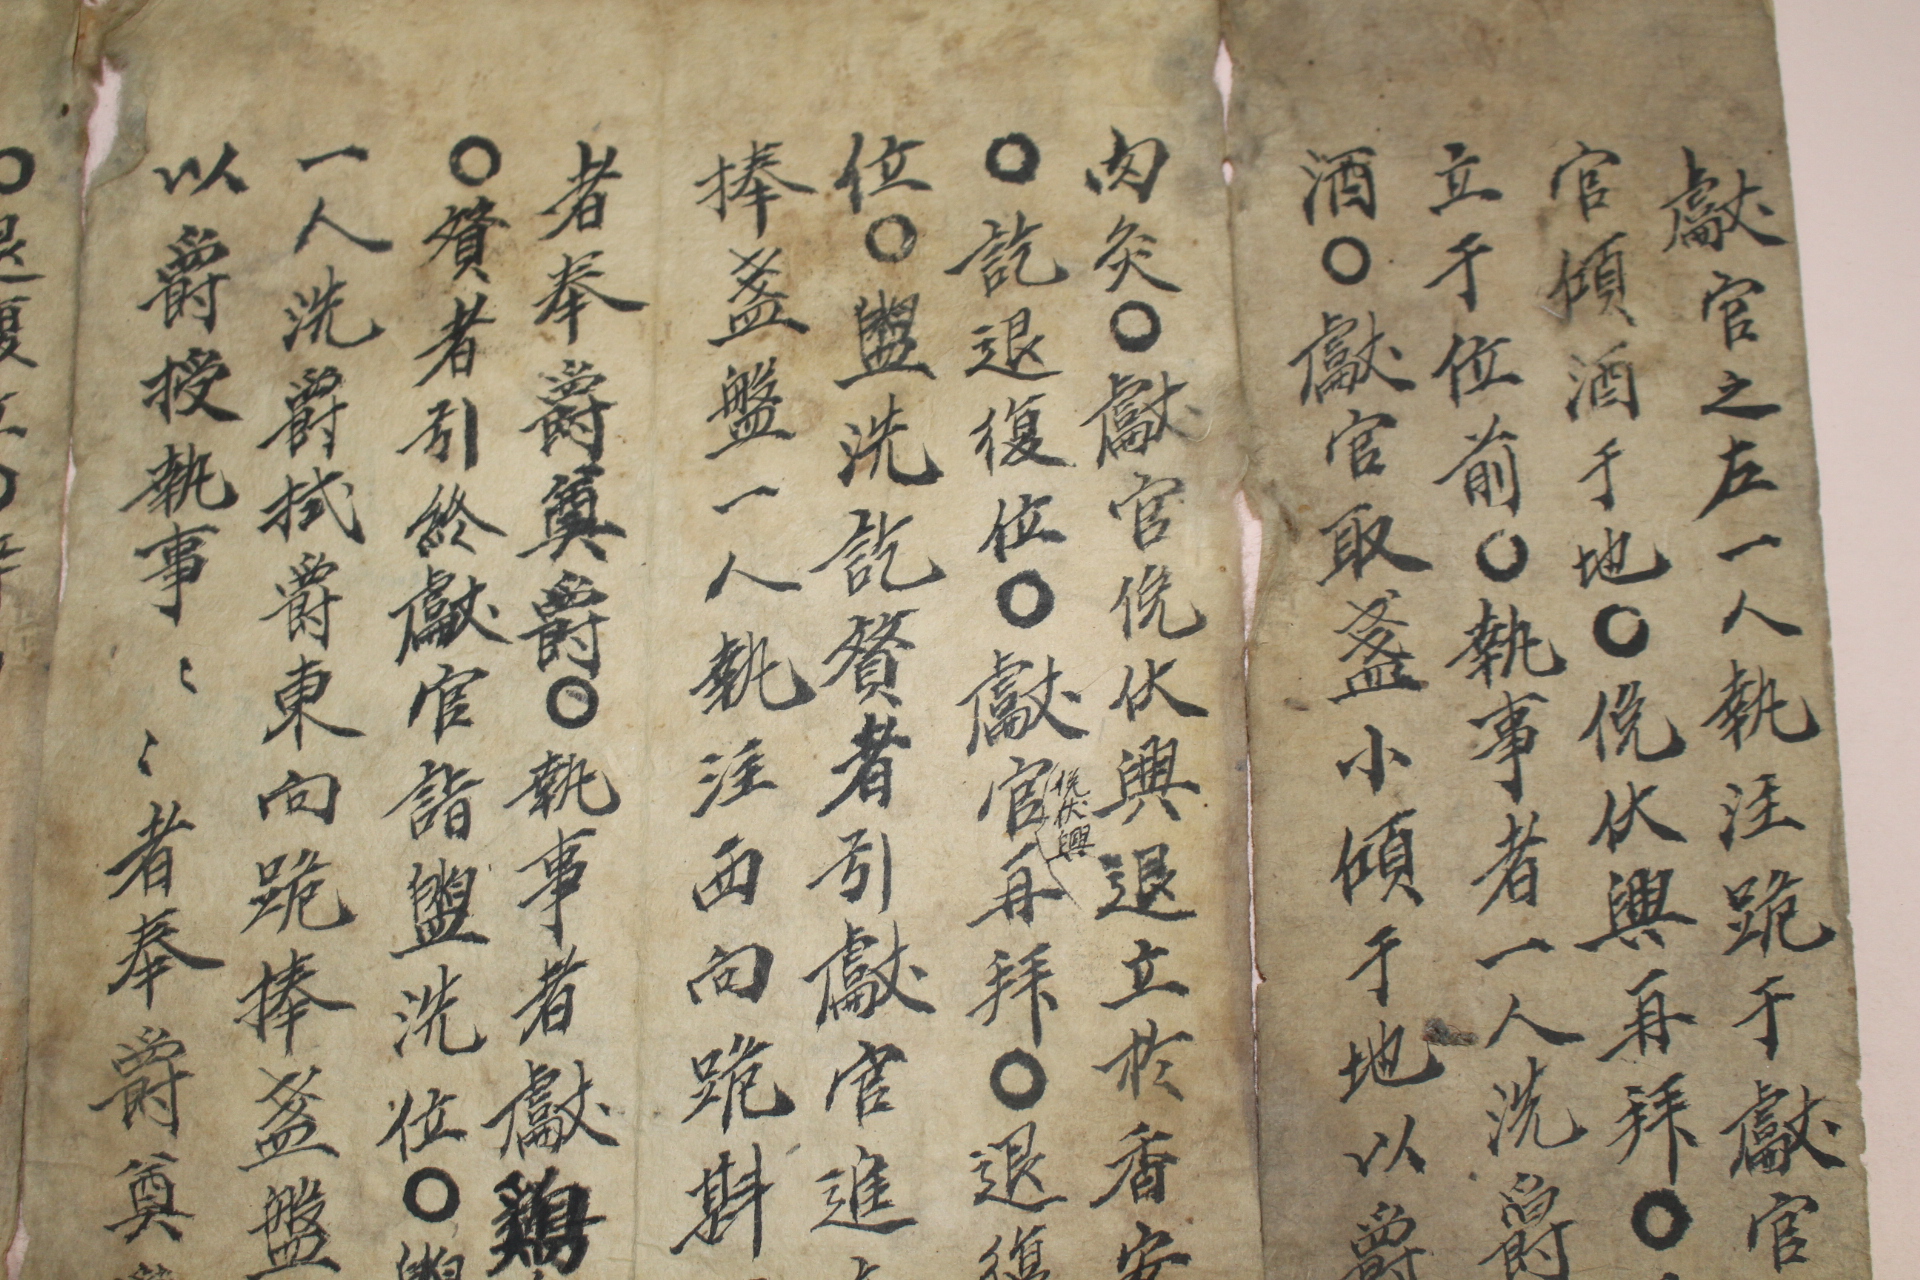 獻官之左一人執注跪于獻官
官傾酒于地○俛伏興再拜○
立于位前○執事者一人洗爵
酒○獻官取盞小傾于地以爵
肉炙○獻官俛伏興退立於香安
○訖退復位○獻官再拜○退復
俛伏興
位○盥洗訖贊者引獻官進
捧盞盤一人執注西向跪斟
者奉爵奠爵○執事者獻鷄
○贊者引終獻官詣盥洗位○
一人洗爵拭爵東向跪捧盞盤
以爵授執事〻〻者奉爵奠
○退復立○